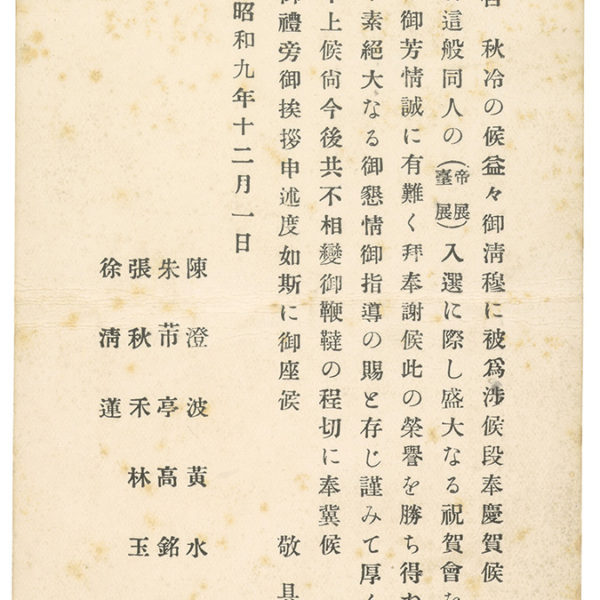 秋冷の候益々御淸穆に被爲涉候段奉慶賀候
這般同人の(帝展臺展)入選に際し盛大なる祝賀會
御芳情誠に有難く拜奉謝候此の榮譽を勝ち得
素絕大なる御懇情御指導の賜と存じ謹みて厚く
上候尙今後共不相變御鞭韃の程切に奉冀候
禮旁御挨拶申述度如斯に御座候 敬具
昭和九年十二月一日
陳澄波黃水
朱芾亭高銘
張秋禾林玉
徐淸蓮